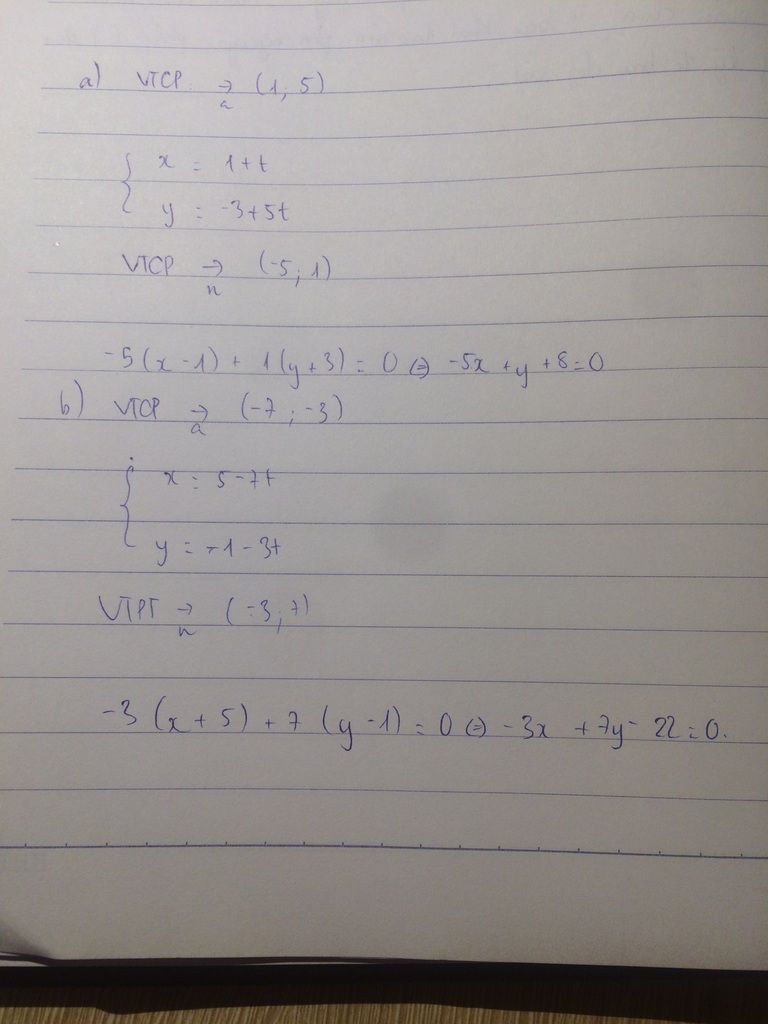 a) VTCP →a (1; 5)
{ x = 1+t
y = -3+5t
VTCP →n (-5; 1)
-5(x-1) + 1(y+3) = 0 ⇔ -5x + y +8=0
b) VTCP →a (-7; -3)
{ x = 5-7t
y = -1-3t
VTPT →n (-3; 7)
-3 (x+5) + 7 (y-1) = 0 ⇔ -3x + 7y - 22 = 0.